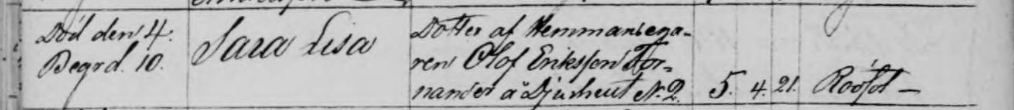 Död den 4.
Begrd. 10.
Sara Lisa
Dotter af Hemmansega-
ren Olof Eriksson For-
nander å N:o 2.
5. 4. 21.
Rödsot —